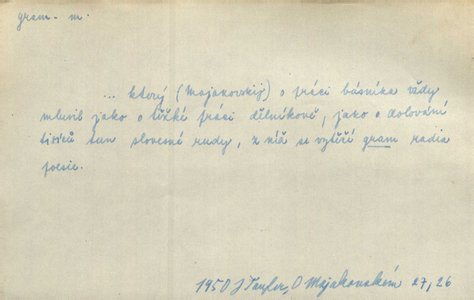 gram - m.
... který (Majakovskij) o práci básníka vždy
mluvil jako o těžké práci dělníkově, jako o dolování
tisíců tun slovesné rudy, z níž se vytěží gram radia
poesie.
1950 J Taufer, O Majakovském 27, 26